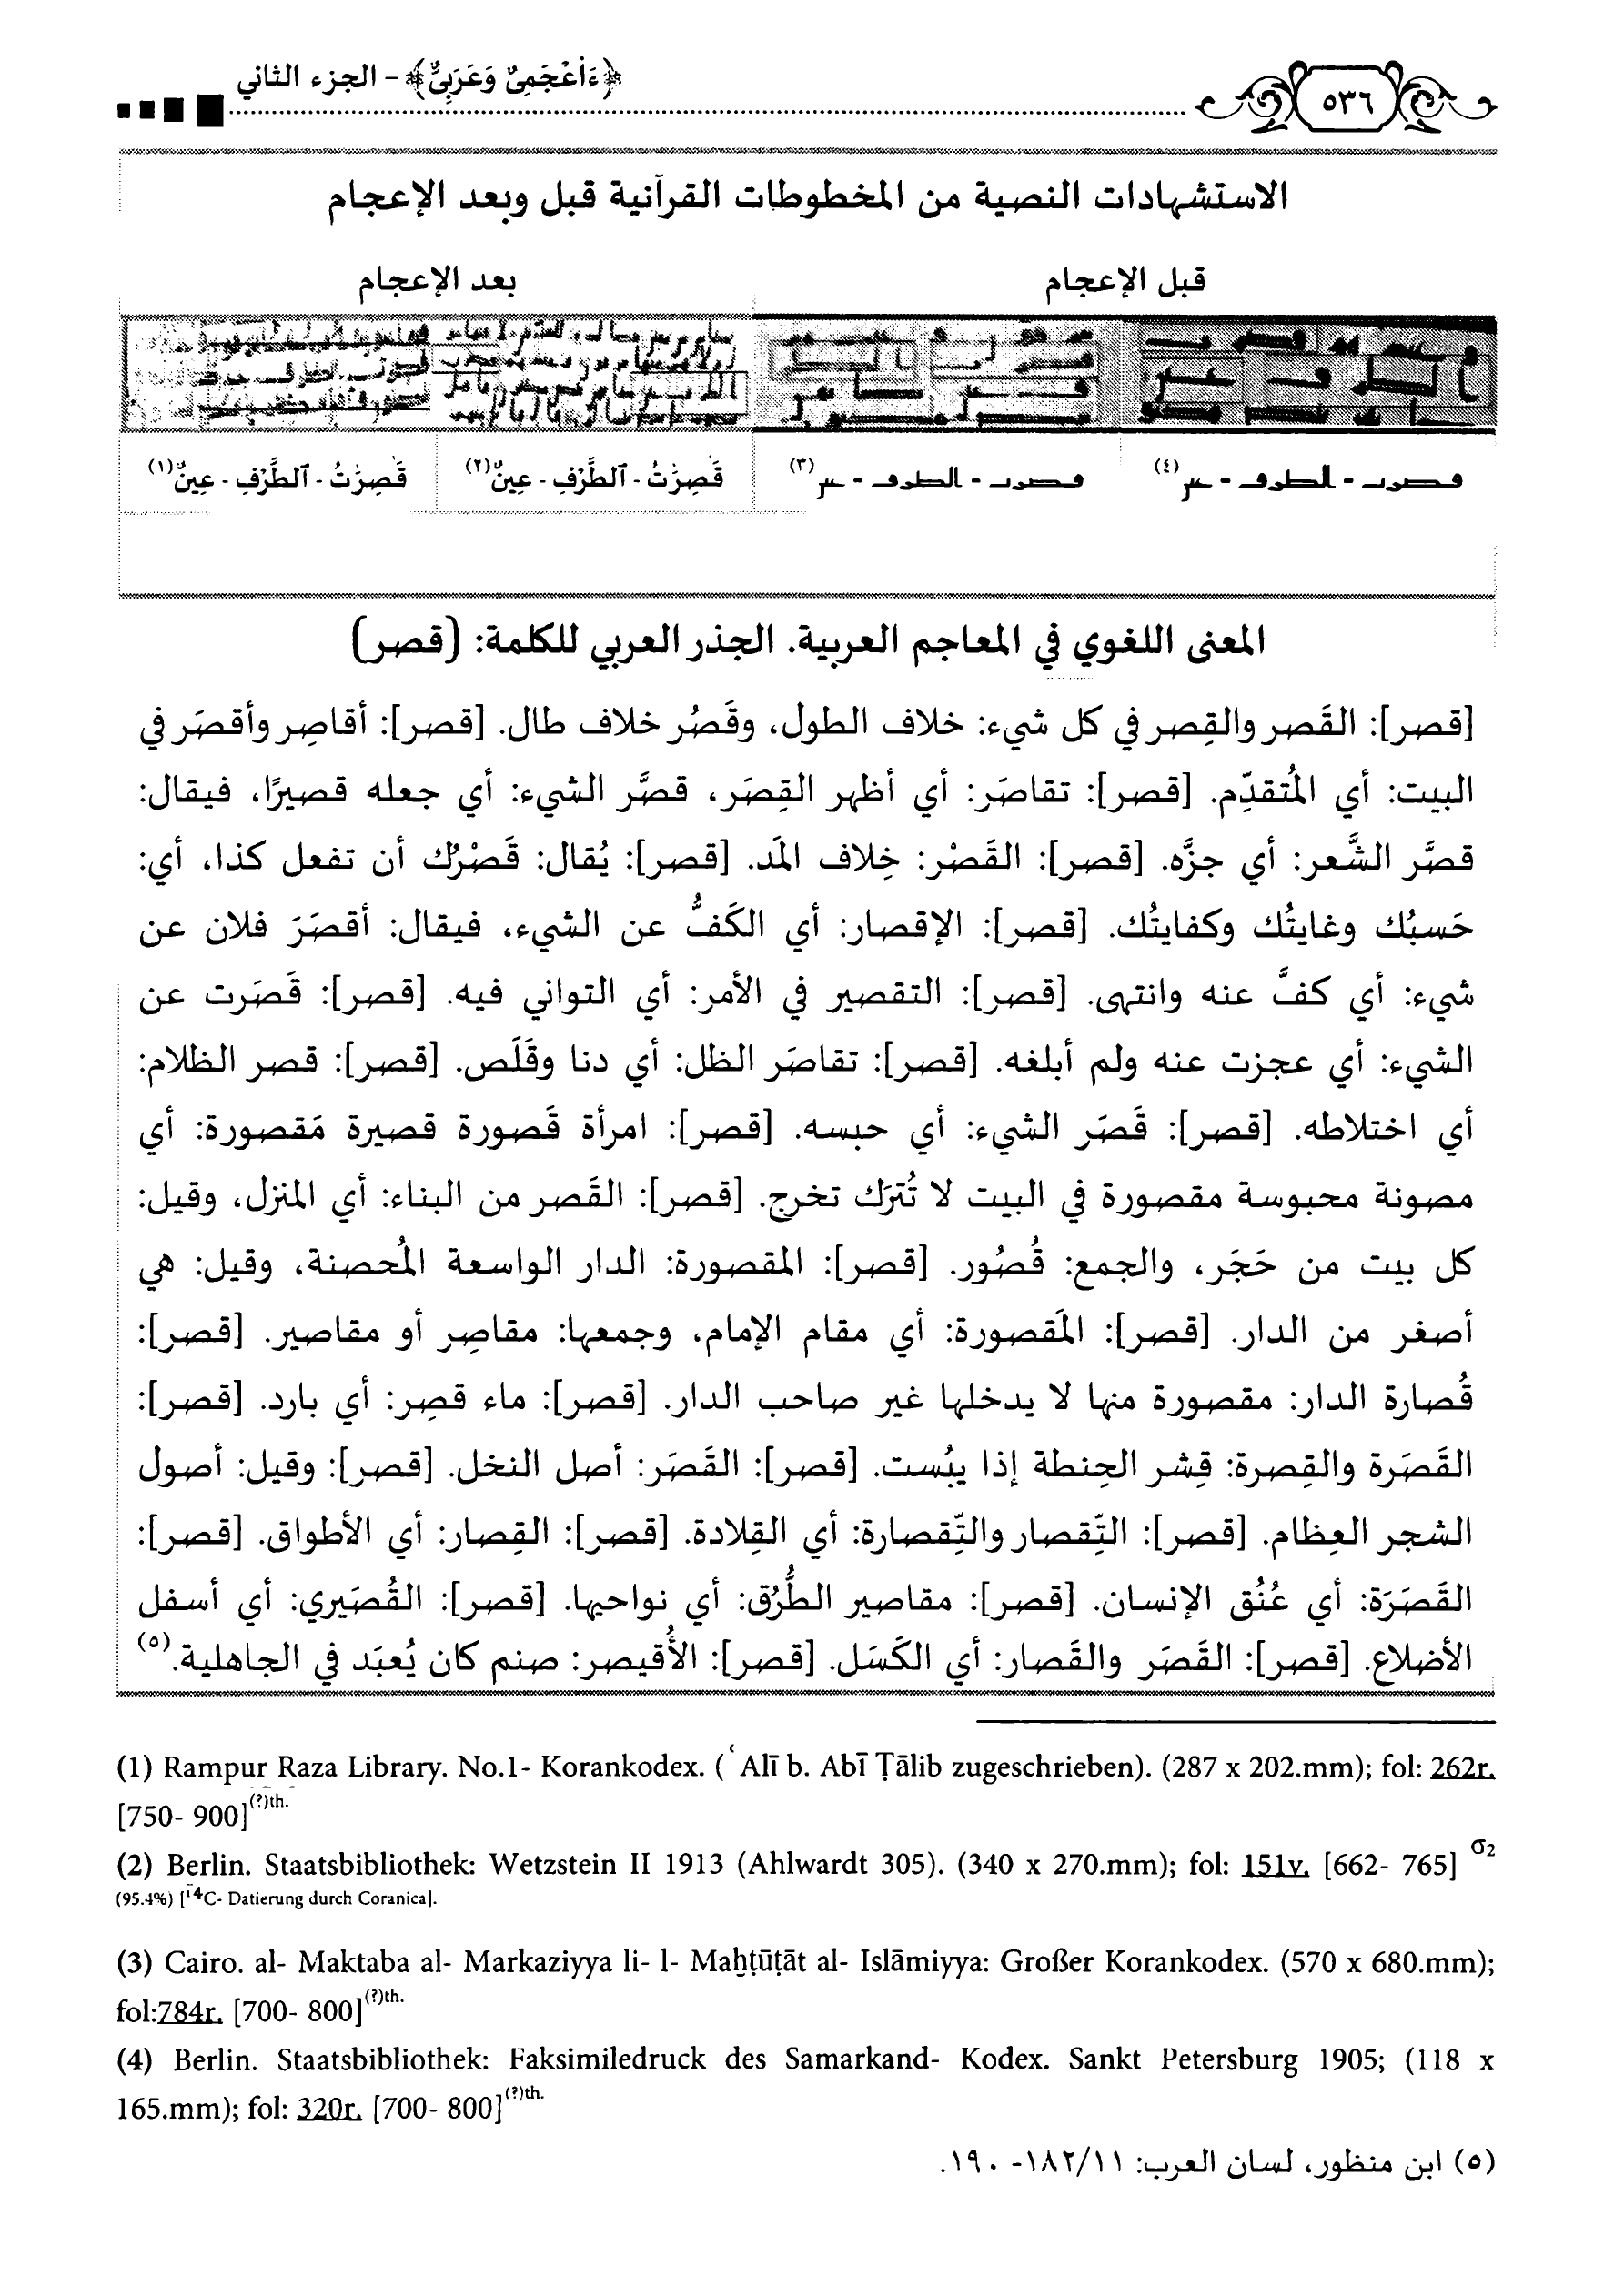 ٥٣٦
﴿ءَاْعْجَمِىٌّ وَعَرَبِىٌّ﴾ – الجزء الثاني
الاستشهادات النصية من المخطوطات القرآنية قبل وبعد الإعجام
قبل الإعجام
بعد الإعجام
قَٰصِرَٰتُ - ٱلطَّرْفِ - عِينٌ(٢)
قَٰصِرَٰتُ - ٱلطَّرْفِ - عِينٌ(١)
المعنى اللغوي في المعاجم العربية. الجذر العربي للكلمة: (قصر)
[قصر]: القَصر والقِصر في كل شيء: خلاف الطول، وقَصُر خلاف طال. [قصر]: أقاصِر وأقصَر في
البيت: أي المُتقدِّم. [قصر]: تقاصَر: أي أظهر القِصَر، قصَّر الشيء: أي جعله قصيرًا، فيقال:
قصَّر الشَّعر: أي جزَّه. [قصر]: القَصْر: خِلاف المَد. [قصر]: يُقال: قَصْرُك أن تفعل كذا، أي:
حَسبُك وغايتُك وكفايتُك. [قصر]: الإقصار: أي الكَفُّ عن الشيء، فيقال: أقصَرَ فلان عن
شيء: أي كفَّ عنه وانتهى. [قصر]: التقصير في الأمر: أي التواني فيه. [قصر]: قَصَرت عن
الشيء: أي عجزت عنه ولم أبلغه. [قصر]: تقاصَر الظل: أي دنا وقَلَص. [قصر]: قصر الظلام:
أي اختلاطه. [قصر]: قَصَر الشيء: أي حبسه. [قصر]: امرأة قَصورة قصيرة مَقصورة: أي
مصونة محبوسة مقصورة في البيت لا تُترَك تخرج. [قصر]: القَصر من البناء: أي المنزل، وقيل:
كل بيت من حَجَر، والجمع: قُصُور. [قصر]: المقصورة: الدار الواسعة المُحصنة، وقيل: هي
أصغر من الدار. [قصر]: المَقصورة: أي مقام الإمام، وجمعها: مقاصِر أو مقاصير. [قصر]:
قُصارة الدار: مقصورة منها لا يدخلها غير صاحب الدار. [قصر]: ماء قصِر: أي بارد. [قصر]:
القَصَرة والقِصرة: قِشر الحِنطة إذا يبُست. [قصر]: القَصَر: أصل النخل. [قصر]: وقيل: أصول
الشجر العِظام. [قصر]: التِّقصار والتِّقصارة: أي القِلادة. [قصر]: القِصار: أي الأطواق. [قصر]:
القَصَرَة: أي عُنُق الإنسان. [قصر]: مقاصير الطُّرُق: أي نواحيها. [قصر]: القُصَيري: أي أسفل
الأضلاع. [قصر]: القَصَر والقَصار: أي الكَسَل. [قصر]: الأُقيصر: صنم كان يُعبَد في الجاهلية.(٥)
(1) Rampur Raza Library. No.1- Korankodex. (ʿAlī b. Abī Ṭālib zugeschrieben). (287 x 202.mm); fol: 262r.
[750- 900](?)th.
(2) Berlin. Staatsbibliothek: Wetzstein II 1913 (Ahlwardt 305). (340 x 270.mm); fol: 151v. [662- 765] σ2
(95.4%) [14C- Datierung durch Coranica].
(3) Cairo. al- Maktaba al- Markaziyya li- l- Maḫṭūṭāt al- Islāmiyya: Großer Korankodex. (570 x 680.mm);
fol:784r. [700- 800](?)th.
(4) Berlin. Staatsbibliothek: Faksimiledruck des Samarkand- Kodex. Sankt Petersburg 1905; (118 x
165.mm); fol: 320r. [700- 800](?)th.
(٥) ابن منظور، لسان العرب: ١٨٢/١١- ١٩٠.